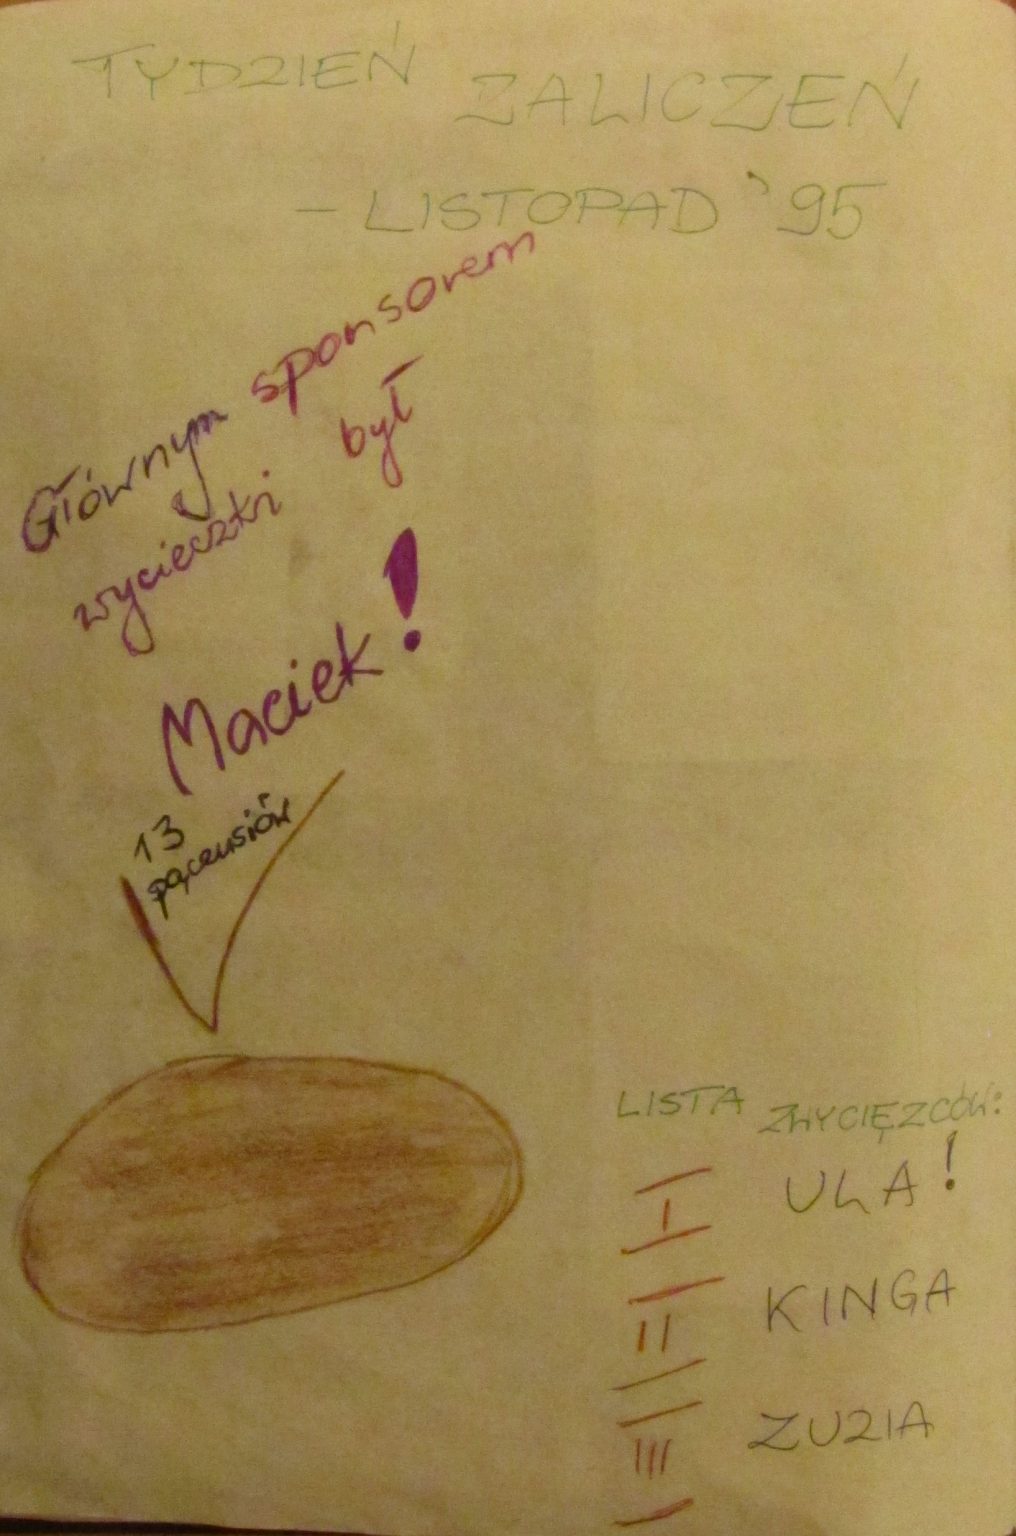 TYDZIEŃ ZALICZEŃ
– LISTOPAD '95
Głównym sponsorem
wycieczki był
Maciek!
13
pączusiów
LISTA ZWYCIĘZCÓW:
I ULA!
II KINGA
III ZUZIA